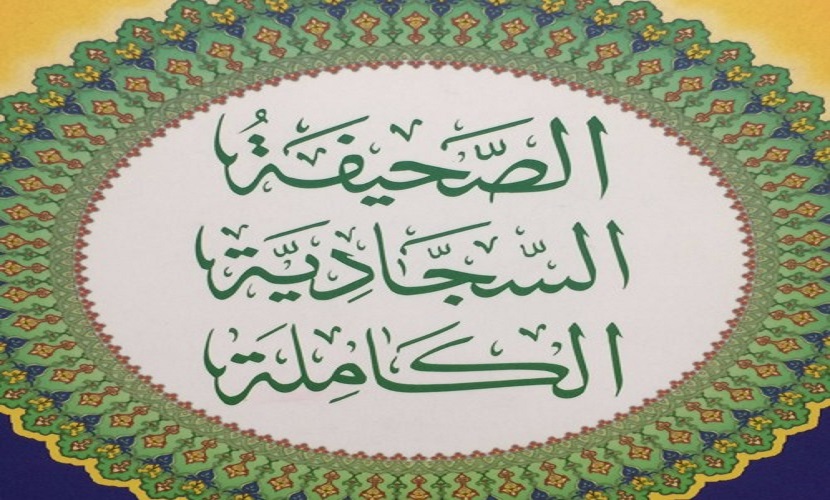 الصَّحيفَةُ
السَّجَّادِيَّة
الكَامِلَة